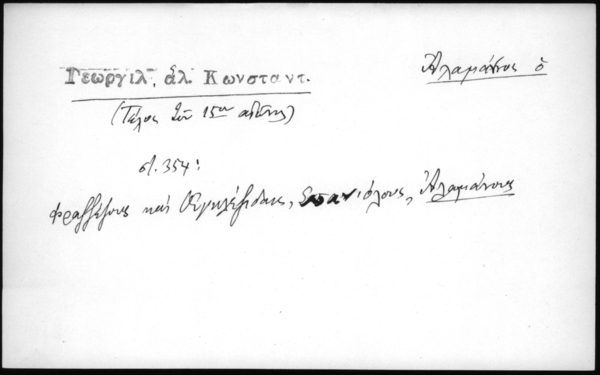 Γεωργιλ, ἁλ. Κωνσταντ.
Ἀλαμάνος ὁ
(Τέλος τοῦ 15ου αἰῶνος)
στ. 354:
Φραντζέζους καὶ Ἐγκλέζιδαις, Σπανιόλους, Ἀλαμάνους